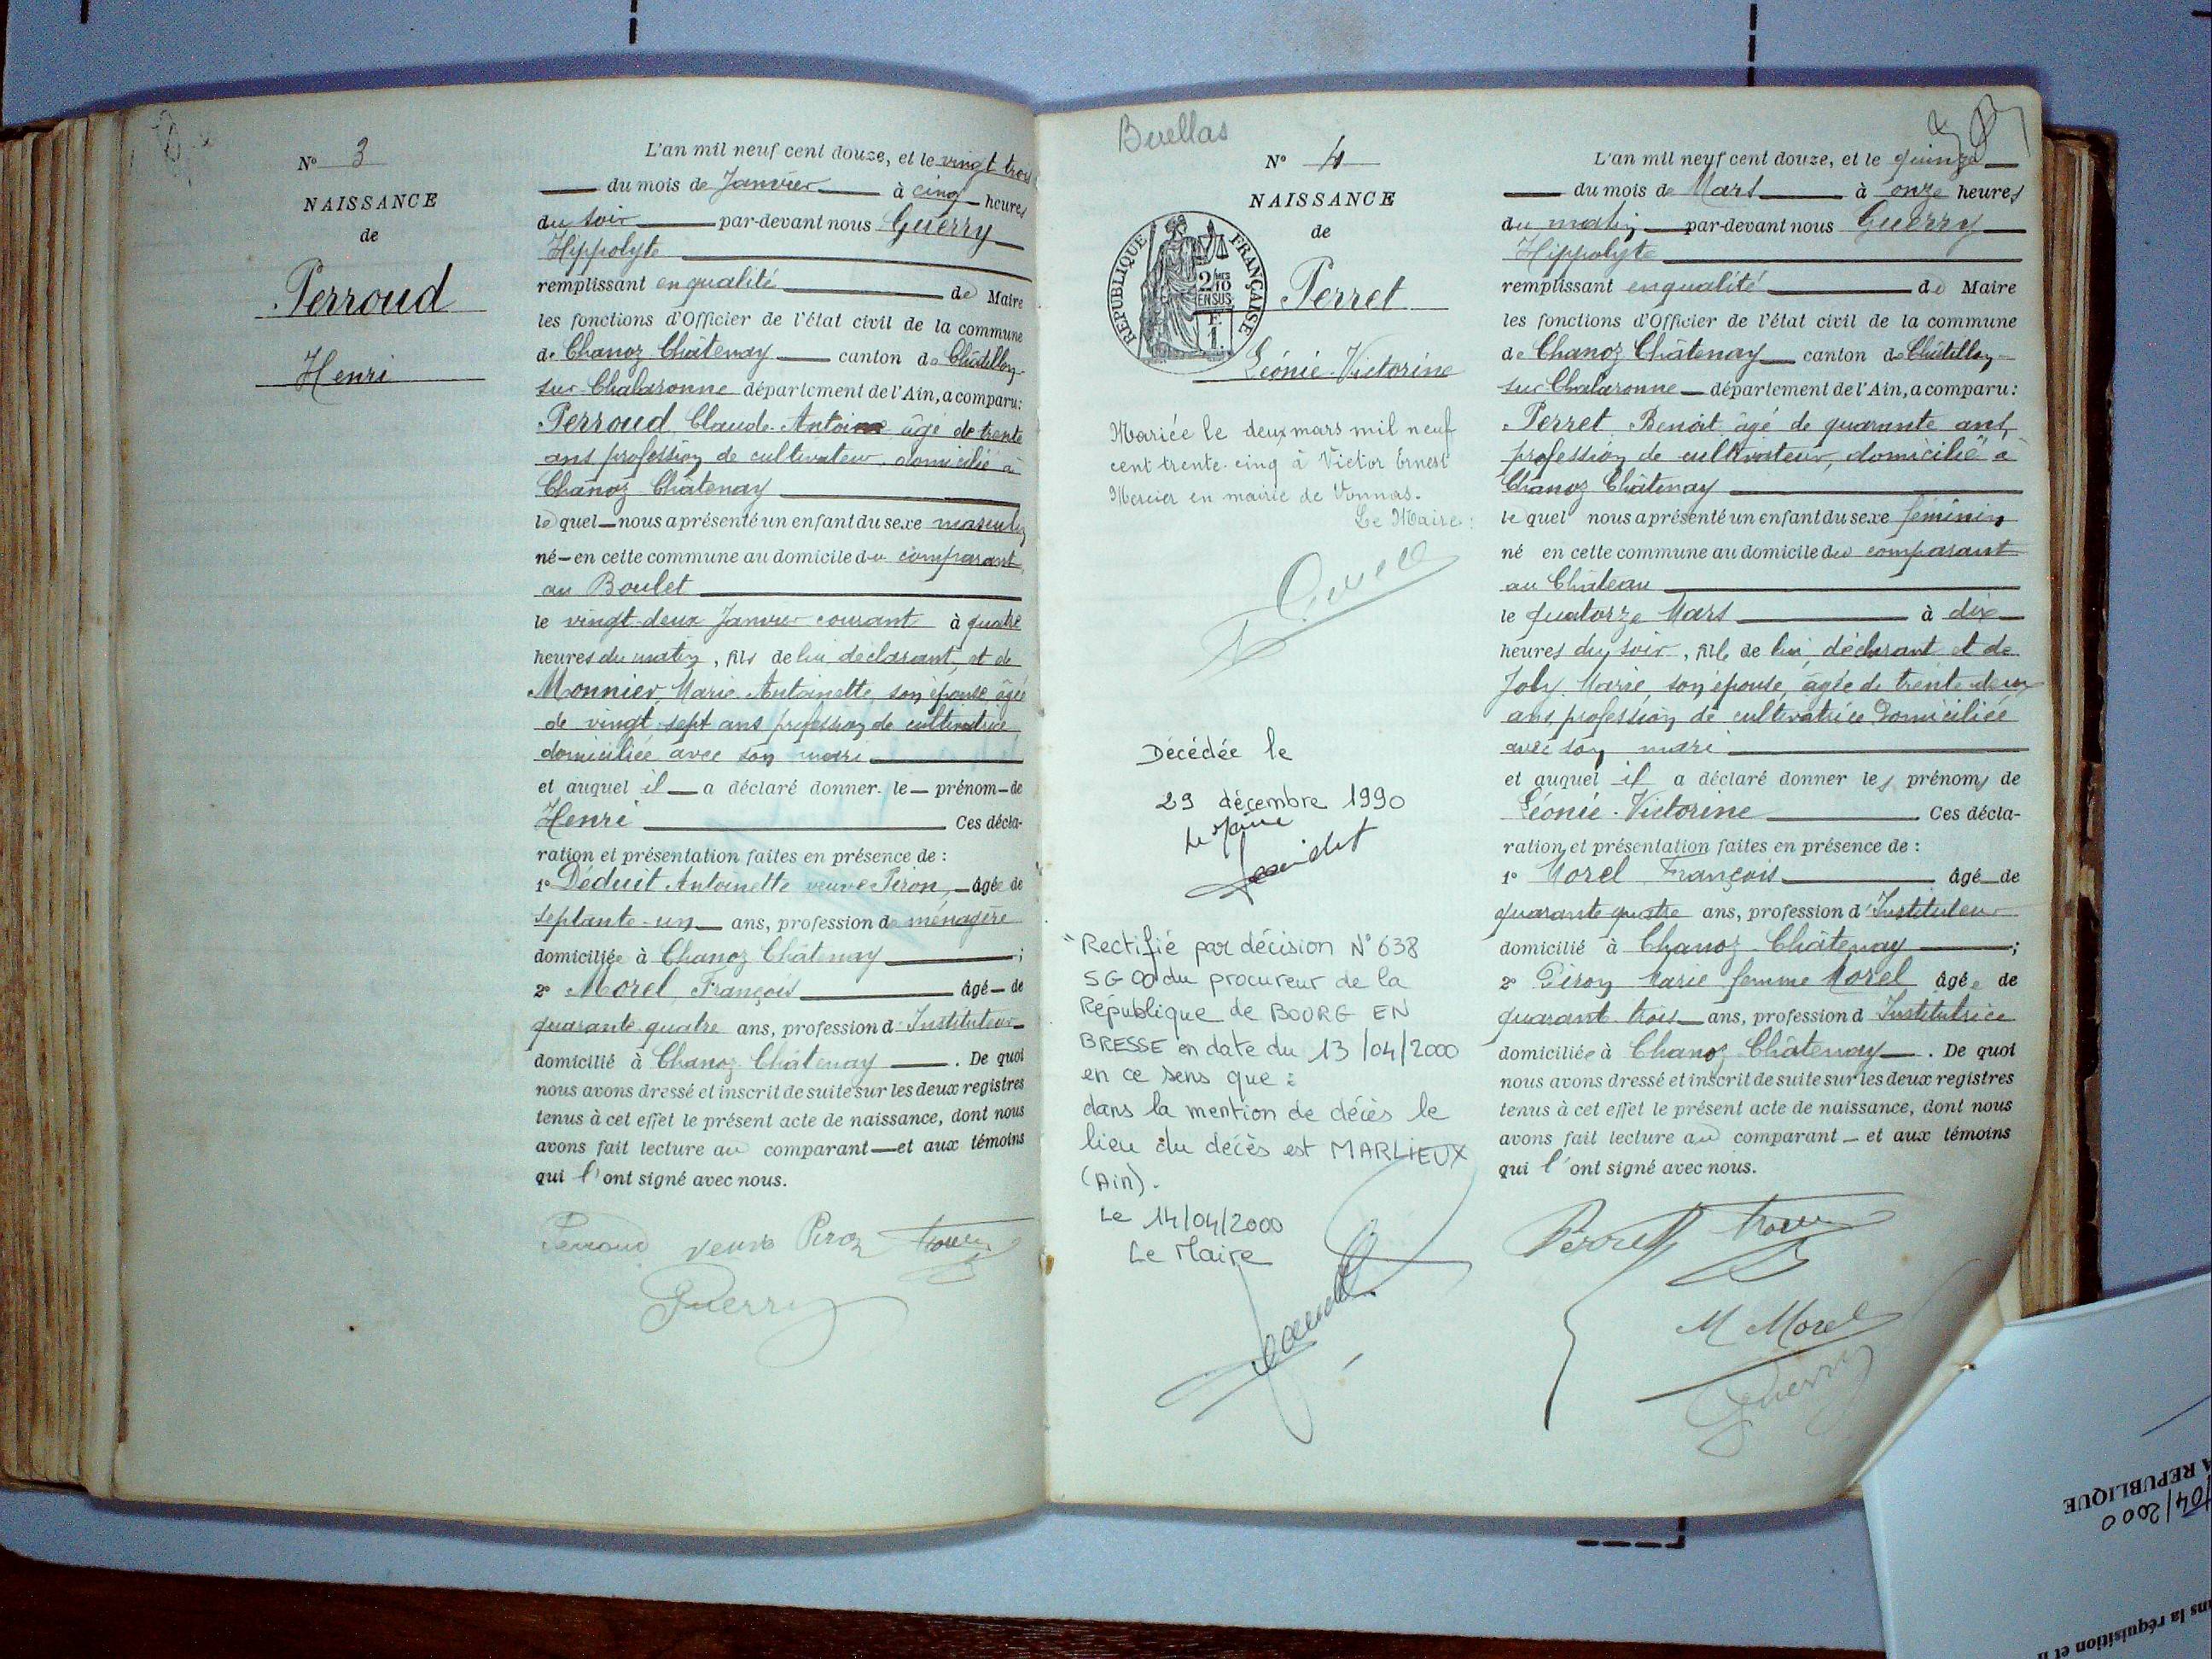 N° 3
NAISSANCE
de
Perroud
Henri
L'an mil neuf cent douze, et le vingt trois
du mois de Janvier à cinq heures
du soir par-devant nous Guerry
Hippolyte
remplissant en qualité de Maire
les fonctions d'Officier de l'état civil de la commune
de Chanoz Châtenay canton de Châtillon
sur Chalaronne département de l'Ain, a comparu:
Perroud Claude-Antoine âgé de trente
ans profession de cultivateur, domicilié à
Chanoz Châtenay
lequel nous a présenté un enfant du sexe masculin
né en cette commune au domicile du comparant
au Boulet
le vingt-deux Janvier courant à quatre
heures du matin, fils de lui déclarant, et de
Monnier, Marie Antoinette, son épouse, âgée
de vingt sept ans profession de cultivatrice
domiciliée avec son mari
et auquel il a déclaré donner le prénom de
Henri Ces décla-
ration et présentation faites en présence de :
1° Déduit Antoinette veuve Piron, âgée de
septante-un ans, profession de ménagère
domiciliée à Chanoz Châtenay ;
2° Morel, François âgé de
quarante quatre ans, profession d'Instituteur
domicilié à Chanoz Châtenay. De quoi
nous avons dressé et inscrit de suite sur les deux registres
tenus à cet effet le présent acte de naissance, dont nous
avons fait lecture au comparant et aux témoins
qui l'ont signé avec nous.
Perroud veuve Piron
Guerry
Buellas
N° 4
NAISSANCE
de
RÉPUBLIQUE FRANÇAISE
2/10
EN SUS
F.
1.
Perret
Léonie-Victorine
Mariée le deux mars mil neuf
cent trente-cinq à Victor Ernest
Mercier en mairie de Vonnas.
Le Maire :
Décédée le
29 décembre 1990
Le Maire
"Rectifié par décision N° 638
SG 00 du procureur de la
République de BOURG EN
BRESSE en date du 13/04/2000
en ce sens que :
dans la mention de décès le
lieu du décès est MARLIEUX
(Ain).
Le 14/04/2000
Le Maire
L'an mil neuf cent douze, et le quinze
du mois de Mars à onze heures
du matin par-devant nous Guerry
Hippolyte
remplissant en qualité de Maire
les fonctions d'Officier de l'état civil de la commune
de Chanoz Châtenay canton de Châtillon-
sur Chalaronne département de l'Ain, a comparu:
Perret Benoit âgé de quarante ans,
profession de cultivateur, domicilié à
Chanoz Châtenay
lequel nous a présenté un enfant du sexe féminin
né en cette commune au domicile du comparant
au Château
le quatorze Mars à dix
heures du soir, fille de lui, déclarant et de
Joly Marie, son épouse, âgée de trente deux
ans, profession de cultivatrice domiciliée
avec son mari
et auquel il a déclaré donner les prénoms de
Léonie-Victorine Ces décla-
ration et présentation faites en présence de :
1° Morel François âgé de
quarante quatre ans, profession d'Instituteur
domicilié à Chanoz Châtenay ;
2° Piron Marie femme Morel âgée de
quarant trois ans, profession d Institutrice
domiciliée à Chanoz Châtenay. De quoi
nous avons dressé et inscrit de suite sur les deux registres
tenus à cet effet le présent acte de naissance, dont nous
avons fait lecture au comparant et aux témoins
qui l'ont signé avec nous.
Perret
M Morel
Guerry
RÉPUBLIQUE
04/2000
la réquisition et